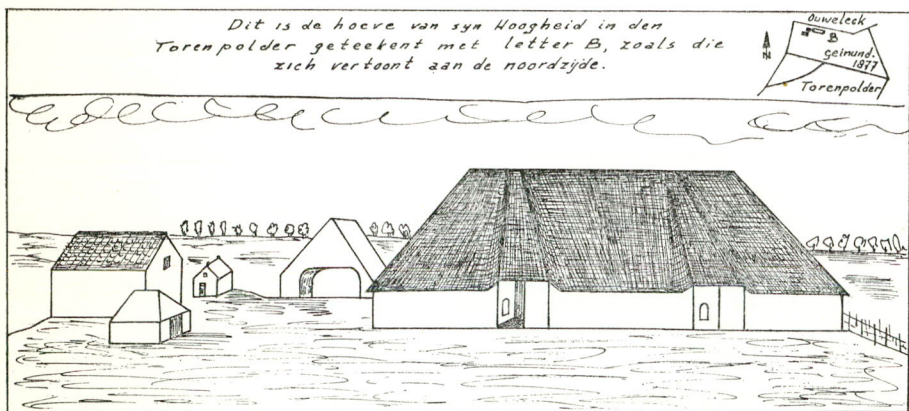 Dit is de hoeve van syn Hoogheid in den
Torenpolder geteekent met letter B, zoals die
zich vertoont aan de noordzijde.
Ouweleck
B
N
geimund.
1877
Torenpolder